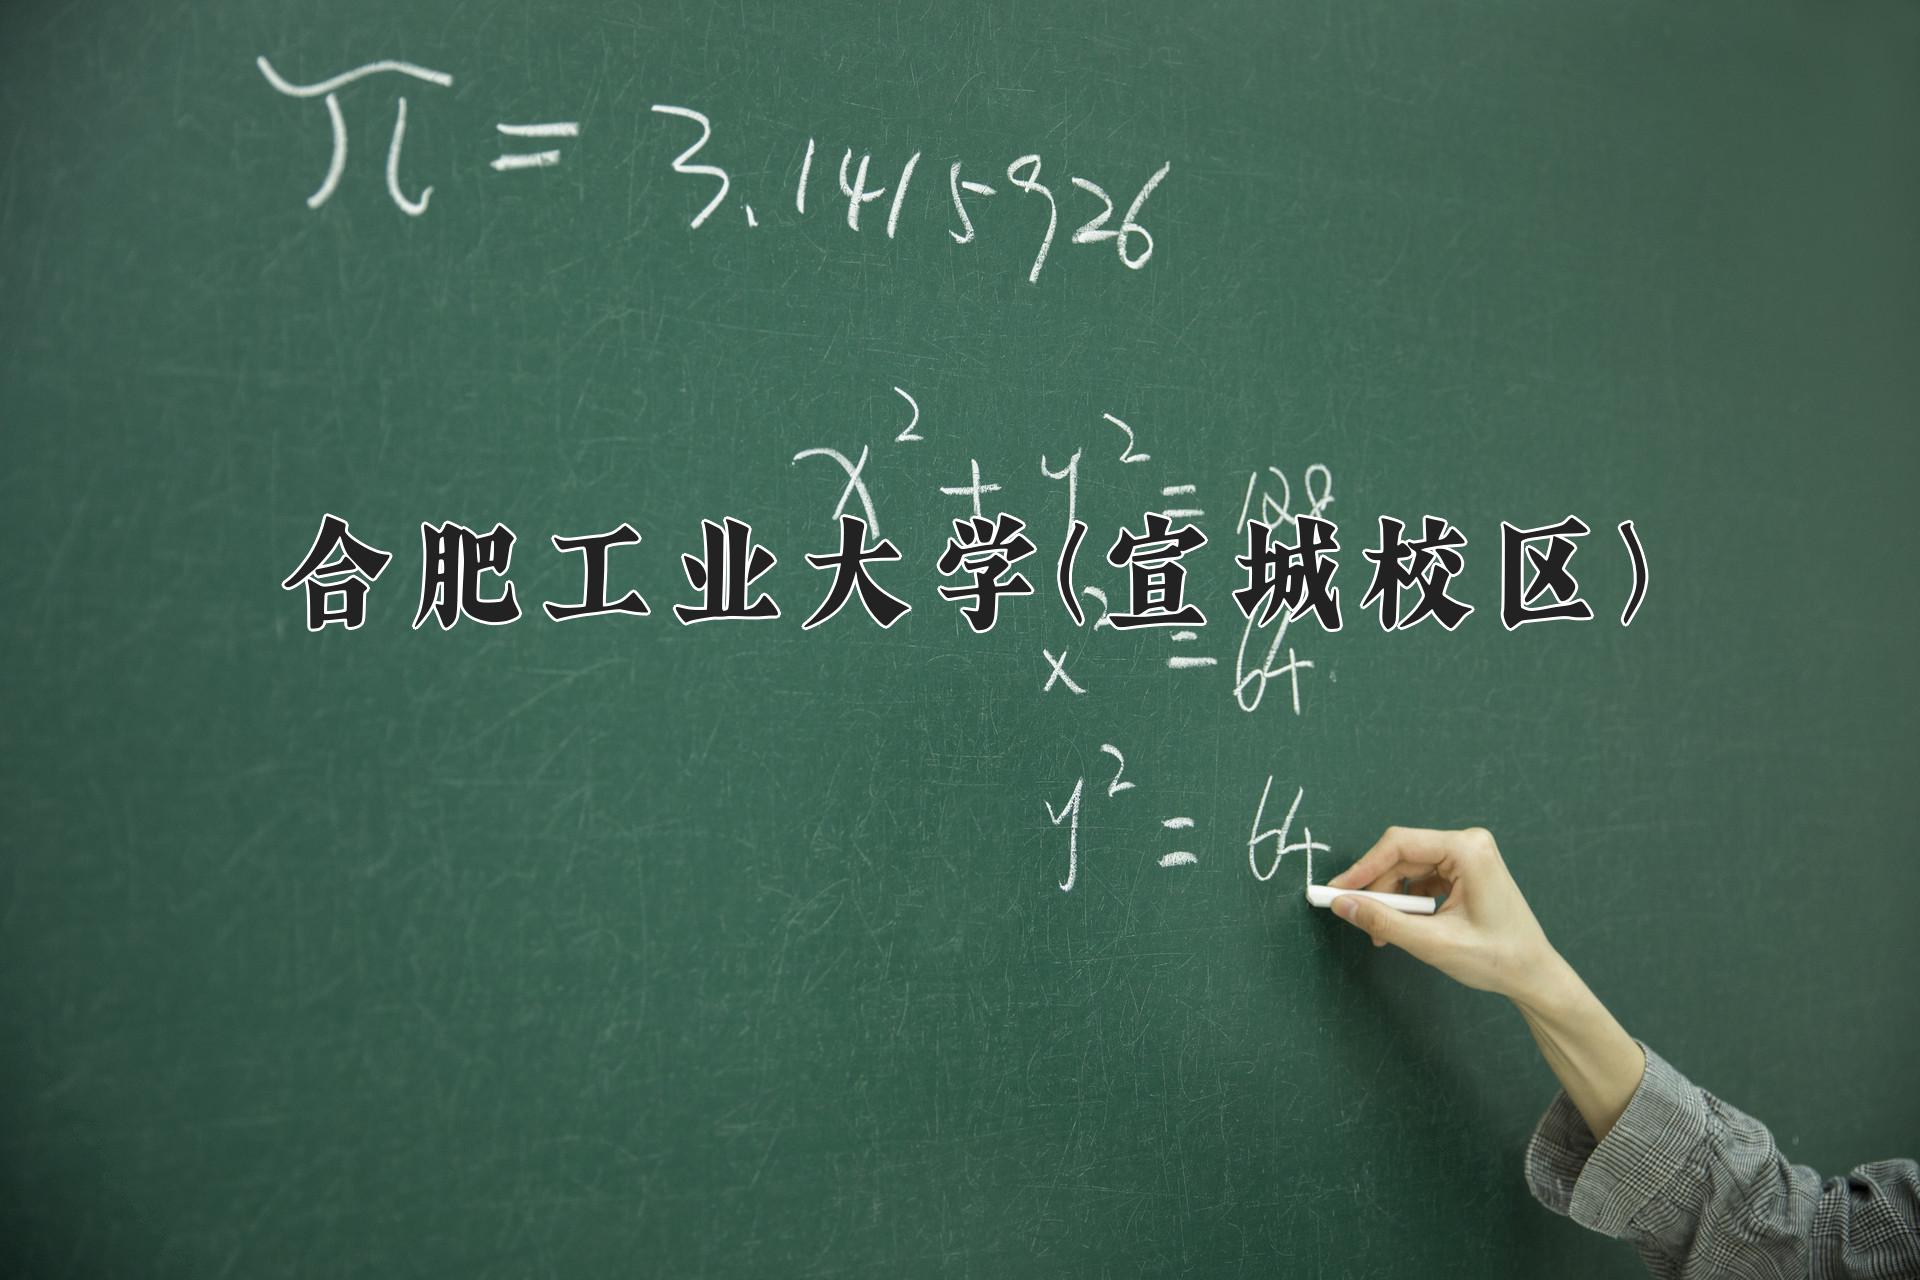 π = 3.1415926
x² + y² = 128
合肥工业大学(宣城校区)
x² = 64
y² = 64